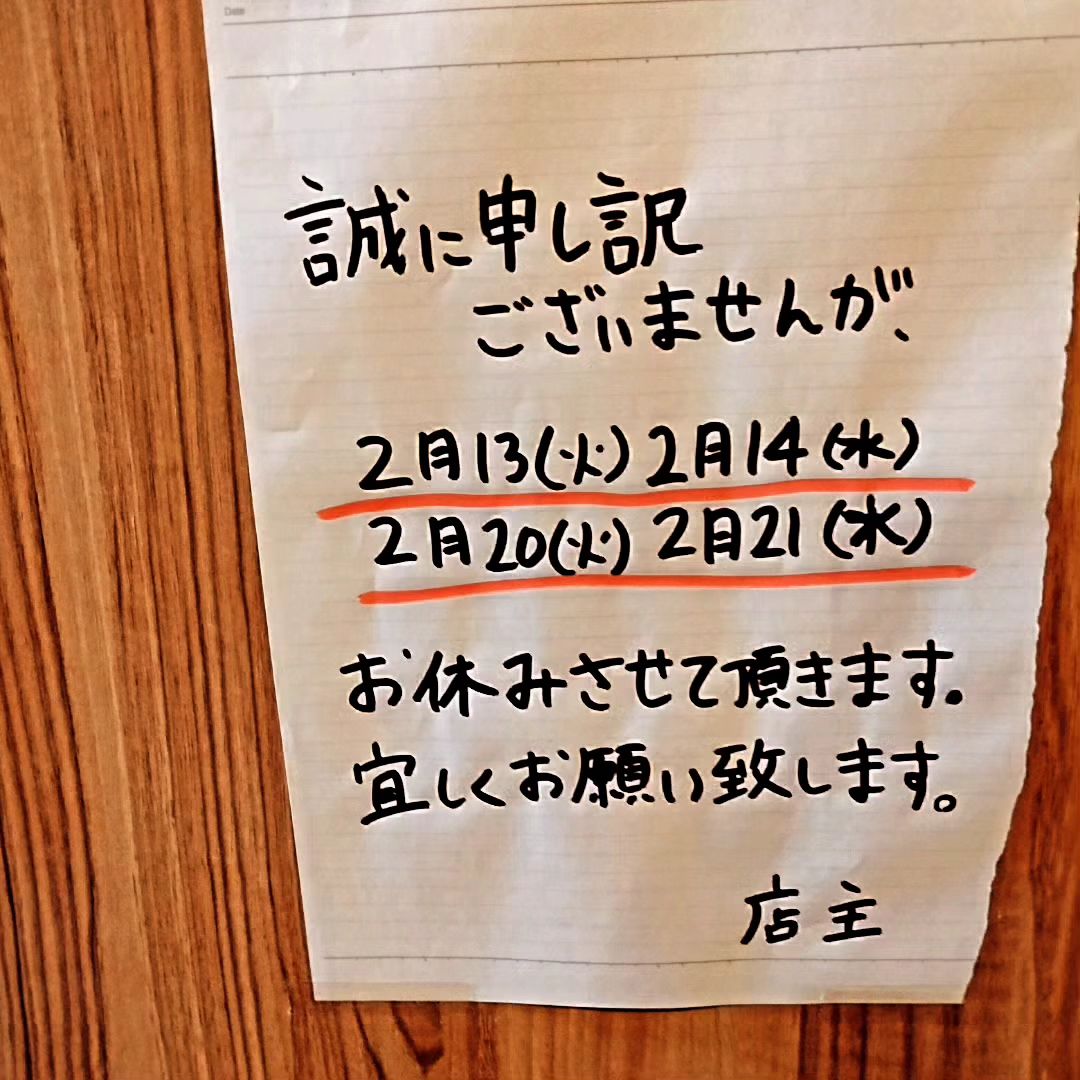 Date
誠に申し訳
ございませんが、
2月13(火) 2月14(水)
2月20(火) 2月21(水)
お休みさせて頂きます。
宜しくお願い致します。
店主